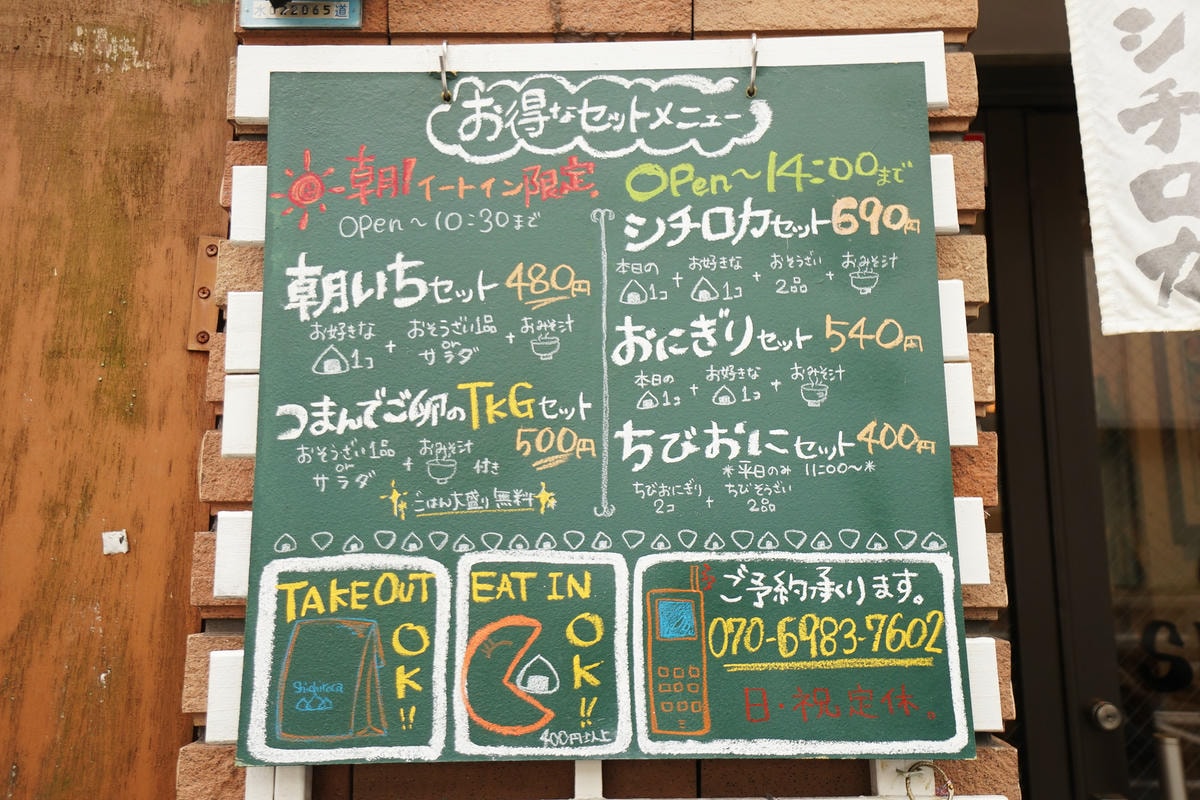 水022065道
お得なセットメニュー
朝!イートイン限定
OPEN～10:30まで
朝いちセット 480円
お好きな 1コ + おそうざい1品 or サラダ + おみそ汁
つまんでご卵のTKGセット
500円
おそうざい1品 or サラダ + おみそ汁 付き
ごはん大盛り無料
OPEN～14:00まで
シチロカセット 690円
本日の 1コ + お好きな 1コ + おそうざい 2品 + おみそ汁
おにぎりセット 540円
本日の 1コ + お好きな 1コ + おみそ汁
ちびおにセット 400円
*平日のみ 11:00～*
ちびおにぎり 2コ + ちびそうざい 2品
TAKEOUT
OK!!
Shichiroca
EAT IN
OK!!
400円以上
ご予約承ります。
070-6983-7602
日・祝定休。
シチロカ